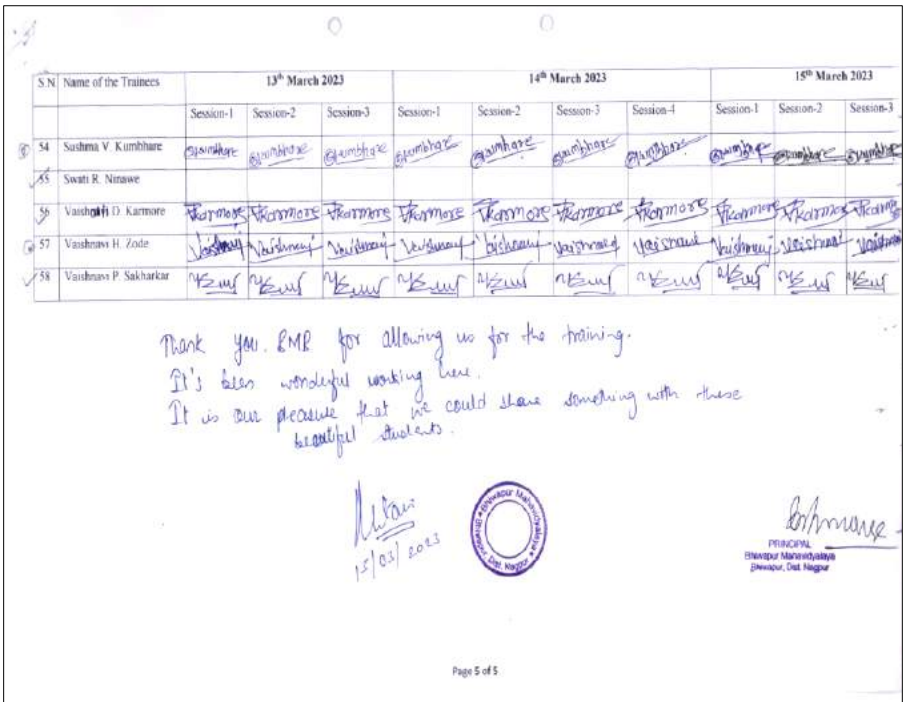 S.N Name of the Trainees 13th March 2023 14th March 2023 15th March 2023
Session-1 Session-2 Session-3 Session-1 Session-2 Session-3 Session-4 Session-1 Session-2 Session-3
54 Sushma V. Kumbhare
55 Swati R. Ninawe
56 Vaishnavi D. Karmore Vkarmore Vkarmore Vkarmore Vkarmore Vkarmore Vkarmore Vkarmore Vkarmore Vkarmore
57 Vaishnavi H. Zode Vaishnavi Vaishnavi Vaishnavi Vaishnavi Vaishnavi Vaishnavi Vaishnavi Vaishnavi Vaishnavi
58 Vaishnavi P. Sakharkar
Thank you. BMB for allowing us for the training.
It's been wonderful working here.
It is our pleasure that we could share something with these
beautiful students.
15/03/2023
Bhiwapur Mahavidyalaya
Bhiwapur, Dist. Nagpur
PRINCIPAL
Bhiwapur Mahavidyalaya
Bhiwapur, Dist. Nagpur
Page 5 of 5